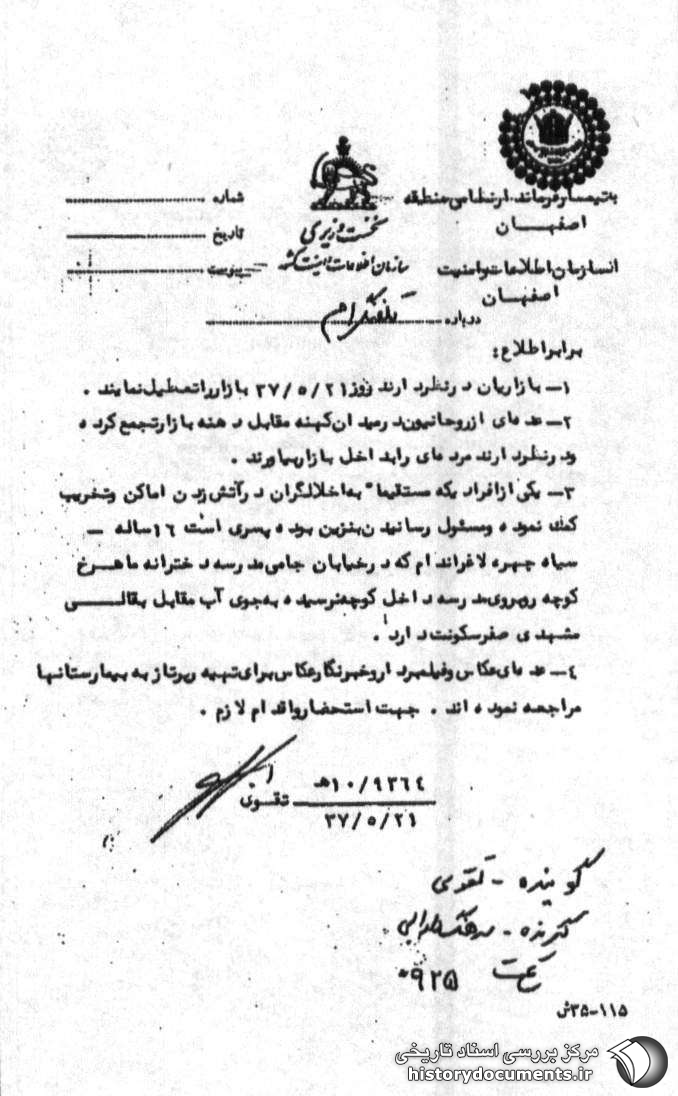 به تیمسار فرماندار نظامی منطقه
اصفهـــان
شماره
نخست وزیری
تاریخ
از سازمان اطلاعات و امنیت
سازمان اطلاعات و امنیت کشور
پیوست
اصفهـــان
درباره تلفنگرام
برابر اطلاع:
۱— بازاریان در نظر دارند روز ۳۷/۵/۲۱ بازار را تعطیل نمایند .
۲— عده ای از روحانیون در میدان کهنه مقابل دهنه بازار تجمع کرده
و در نظر دارند مردم ای را به داخل بازار بیاورند .
۳— یکی از افرادیکه مستقیما" به اخلالگران در آتش زدن اماکن و تخریب
کمک نموده و مسئول رسانیدن بنزین بوده پسری است ۱۶ ساله —
سیاه چهره لاغر اندام که در خیابان جامی مدرسه دخترانه ماهرخ
کوچه روبروی مدرسه داخل کوچه نرسیده به جوی آب مقابل بقالـــی
مشهدی صفر سکونت دارد .
٤— عده ای عکاس و فیلمبردار و خبرنگار عکاس برای تهیه رپرتاژ به بیمارستانها
مراجعه نموده اند . جهت استحضار و اقدام لازم .
۱۰/۹۳۶٤ هـ
تقوی
۳۷/۵/۲۱
گوینده - تقوی
گیرنده - سرهنگ
ساعت ۰۹۲۵
۳۵-۱۱۵ش
مرکز بررسی اسناد تاریخی
historydocuments.ir